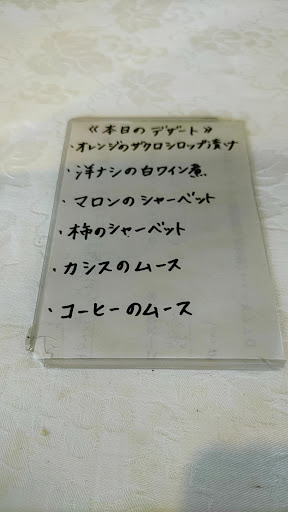 《本日のデザート》
・オレンジのザクロシロップ漬け
・洋ナシの白ワイン煮
・マロンのシャーベット
・柿のシャーベット
・カシスのムース
・コーヒーのムース